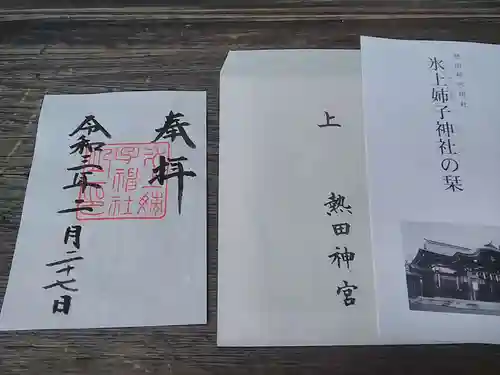 奉拝
氷上姉子神社之印
令和三年二月二十七日
上
熱田神宮
熱田神宮摂社
氷上姉子神社の栞